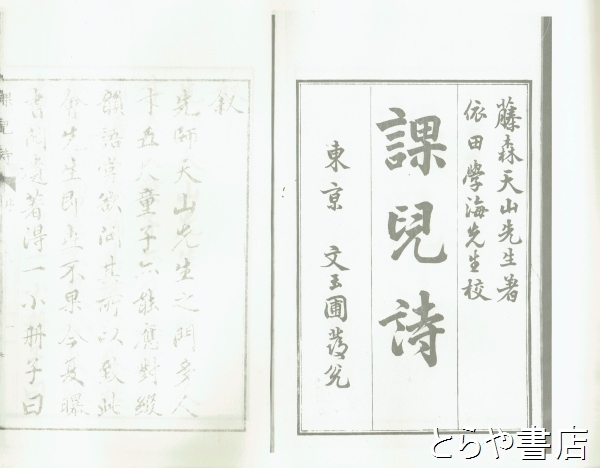 藤森天山先生著
依田學海先生校
課兒詩
東京　文玉圃發兌
叙
先師天山先生之門多人
才五尺童子亦能應對綴
韻語嘗欲問其所以致此
會先生即世不果今夏曝
書閲遺著得一小册子曰
課兒詩
とらや書店